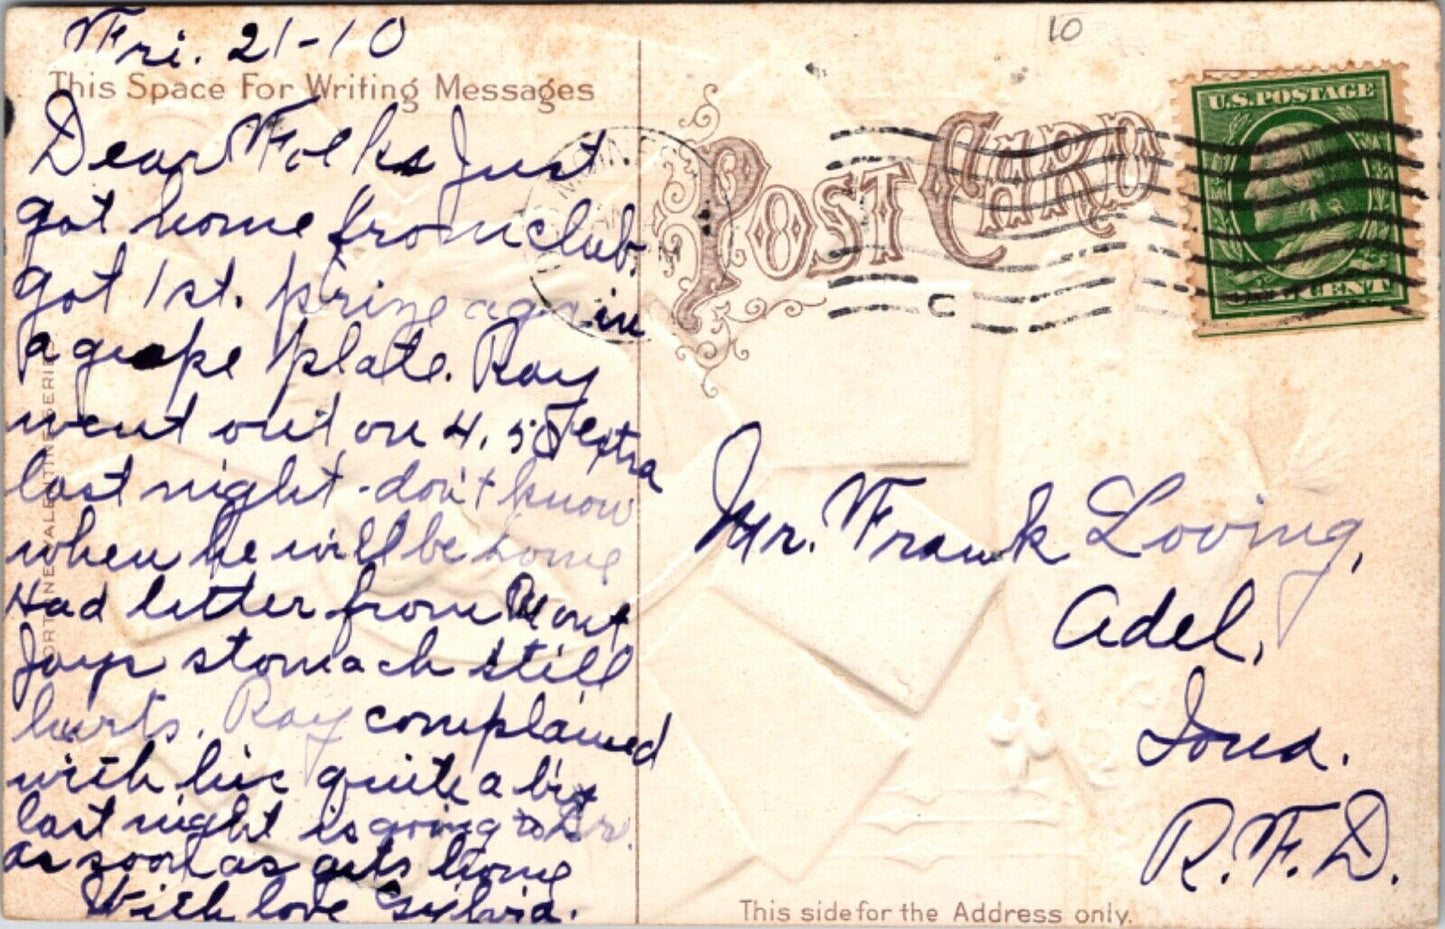 Fri. 21-10
This Space For Writing Messages
Dear Folks Just
got home from club.
got 1st. prize again in
a grape plate. Ray
went out on 4.50 extra
last night - don't know
when he will be home
Had letter from Mont
Jays stomach still
hurts. Ray complained
with his quite a bit
last night is going to Dr.
as soon as gets home
With love Sylvia.
VALENTINE SERIE
POST CARD
10
U.S. POSTAGE
CENT
C
Mr. Frank Loving,
Adel,
Iowa.
R.F.D.
This side for the Address only.